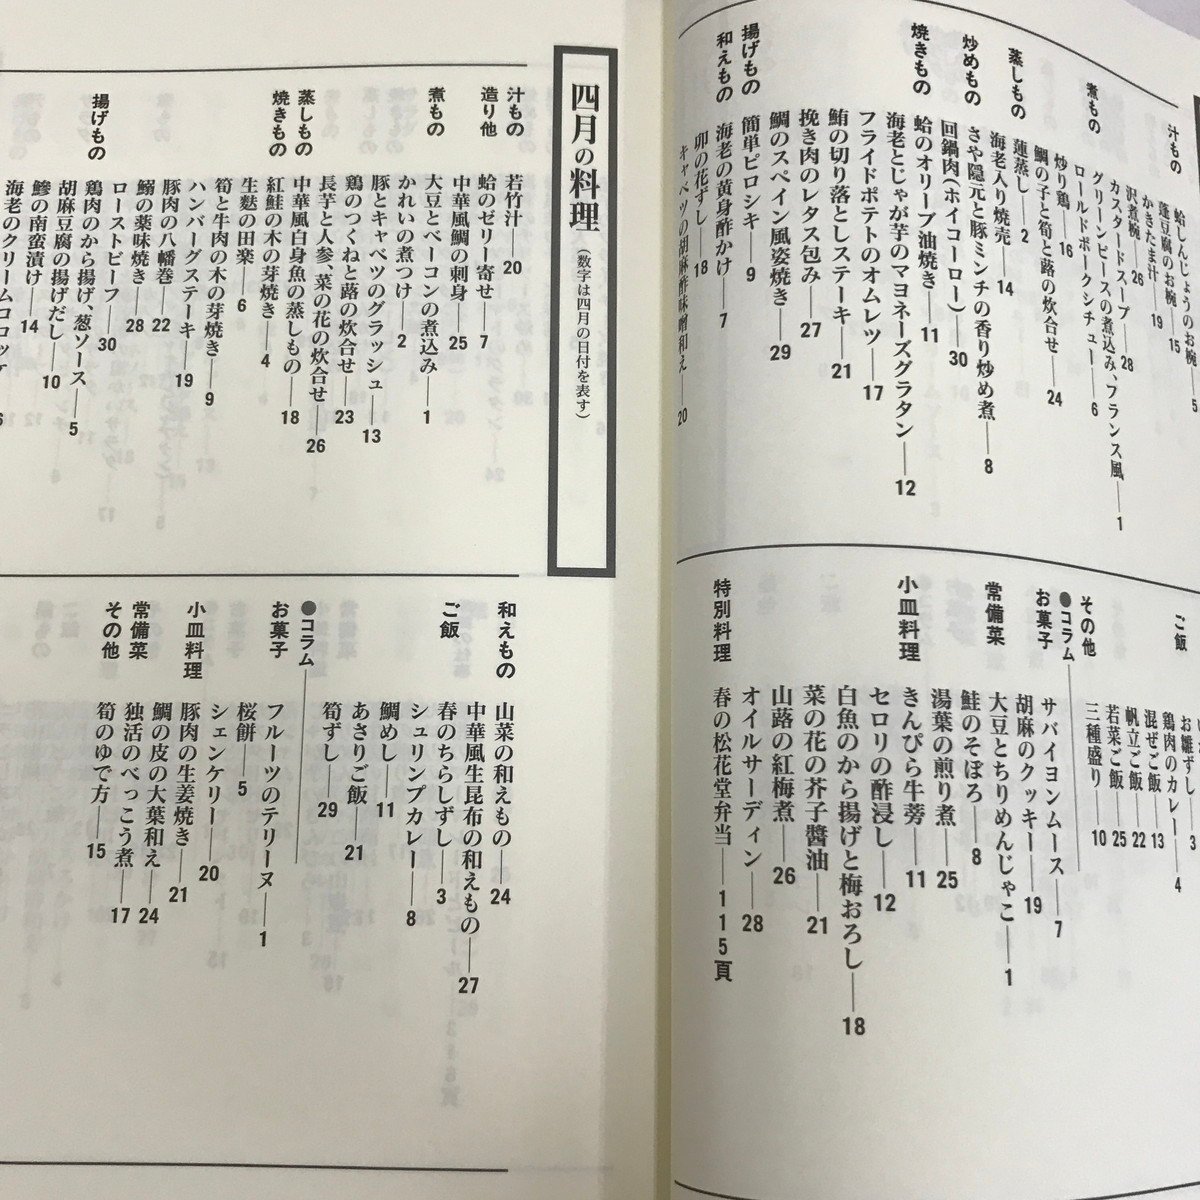 汁もの
蛤しんじょうのお椀――5
蓬豆腐のお椀――15
かきたま汁――19
沢煮椀――26
カスタードスープ――28
煮もの
グリーンピースの煮込み、フランス風――1
ロールドポークシチュー――6
炒り鶏――16
鯛の子と筍と蕗の炊合せ――24
蒸しもの
蓮蒸し――2
海老入り焼売――14
炒めもの
さや隠元と豚ミンチの香り炒め煮――8
回鍋肉(ホイコーロー)――30
焼きもの
蛤のオリーブ油焼き――11
海老とじゃが芋のマヨネーズグラタン――12
フライドポテトのオムレツ――17
鮪の切り落としステーキ――21
挽き肉のレタス包み――27
鯛のスペイン風姿焼き――29
揚げもの
簡単ピロシキ――9
和えもの
海老の黄身酢かけ――7
卯の花ずし――18
キャベツの胡麻酢味噌和え――20
ご飯
お雛ずし――3
鶏肉のカレー――4
混ぜご飯――13
帆立ご飯――22
若菜ご飯――25
その他
三種盛り――10
●コラム
お菓子
サバイヨンムース――7
胡麻のクッキー――19
常備菜
大豆とちりめんじゃこ――1
鮭のそぼろ――8
湯葉の煎り煮――25
小皿料理
きんぴら牛蒡――11
セロリの酢浸し――12
白魚のから揚げと梅おろし――18
菜の花の芥子醬油――21
山蕗の紅梅煮――26
オイルサーディン――28
特別料理
春の松花堂弁当――115頁
四月の料理(数字は四月の日付を表す)
汁もの
若竹汁――20
造り他
蛤のゼリー寄せ――7
中華風鯛の刺身――25
煮もの
大豆とベーコンの煮込み――1
かれいの煮つけ――2
豚とキャベツのグラッシュ――13
鶏のつくねと蕗の炊合せ――23
長芋と人参、菜の花の炊合せ――26
蒸しもの
中華風白身魚の蒸しもの――18
焼きもの
紅鮭の木の芽焼き――4
生麩の田楽――6
筍と牛肉の木の芽焼き――9
ハンバーグステーキ――19
豚肉の八幡巻――22
鰯の薬味焼き――28
ローストビーフ――30
揚げもの
鶏肉のから揚げ、葱ソース――5
胡麻豆腐の揚げだし――10
鰺の南蛮漬け――14
海老のクリームコロッケ
和えもの
山菜の和えもの――24
中華風生昆布の和えもの――27
ご飯
春のちらしずし――3
シュリンプカレー――8
鯛めし――11
あさりご飯――21
筍ずし――29
●コラム
お菓子
フルーツのテリーヌ――1
桜餅――5
シェンケリー――20
小皿料理
豚肉の生姜焼き――21
常備菜
鯛の皮の大葉和え――24
その他
独活のべっこう煮――17
筍のゆで方――15